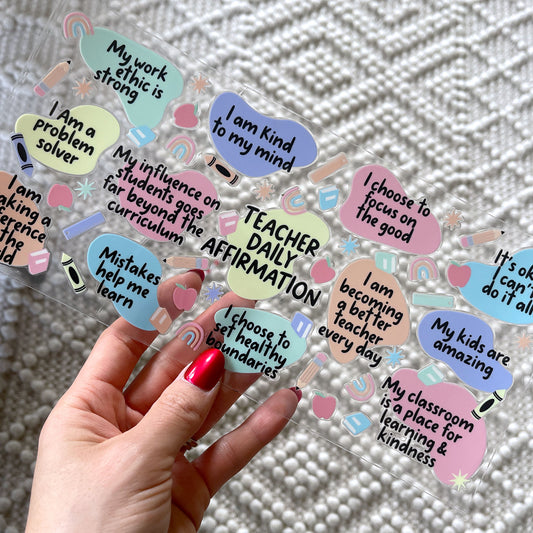 My work
ethic is
strong
I Am a
problem
solver
I am Kind
to my mind
I am
aking a
ference
the
ld
My influence on
students goes
far beyond the
curriculum
I choose to
focus on
the good
TEACHER
DAILY
AFFIRMATION
Mistakes
help me
learn
I am
becoming
a better
teacher
every day
It's ok
I can't
do it all
I choose to
set healthy
boundaries
My kids are
amazing
My classroom
is a place for
learning &
kindness